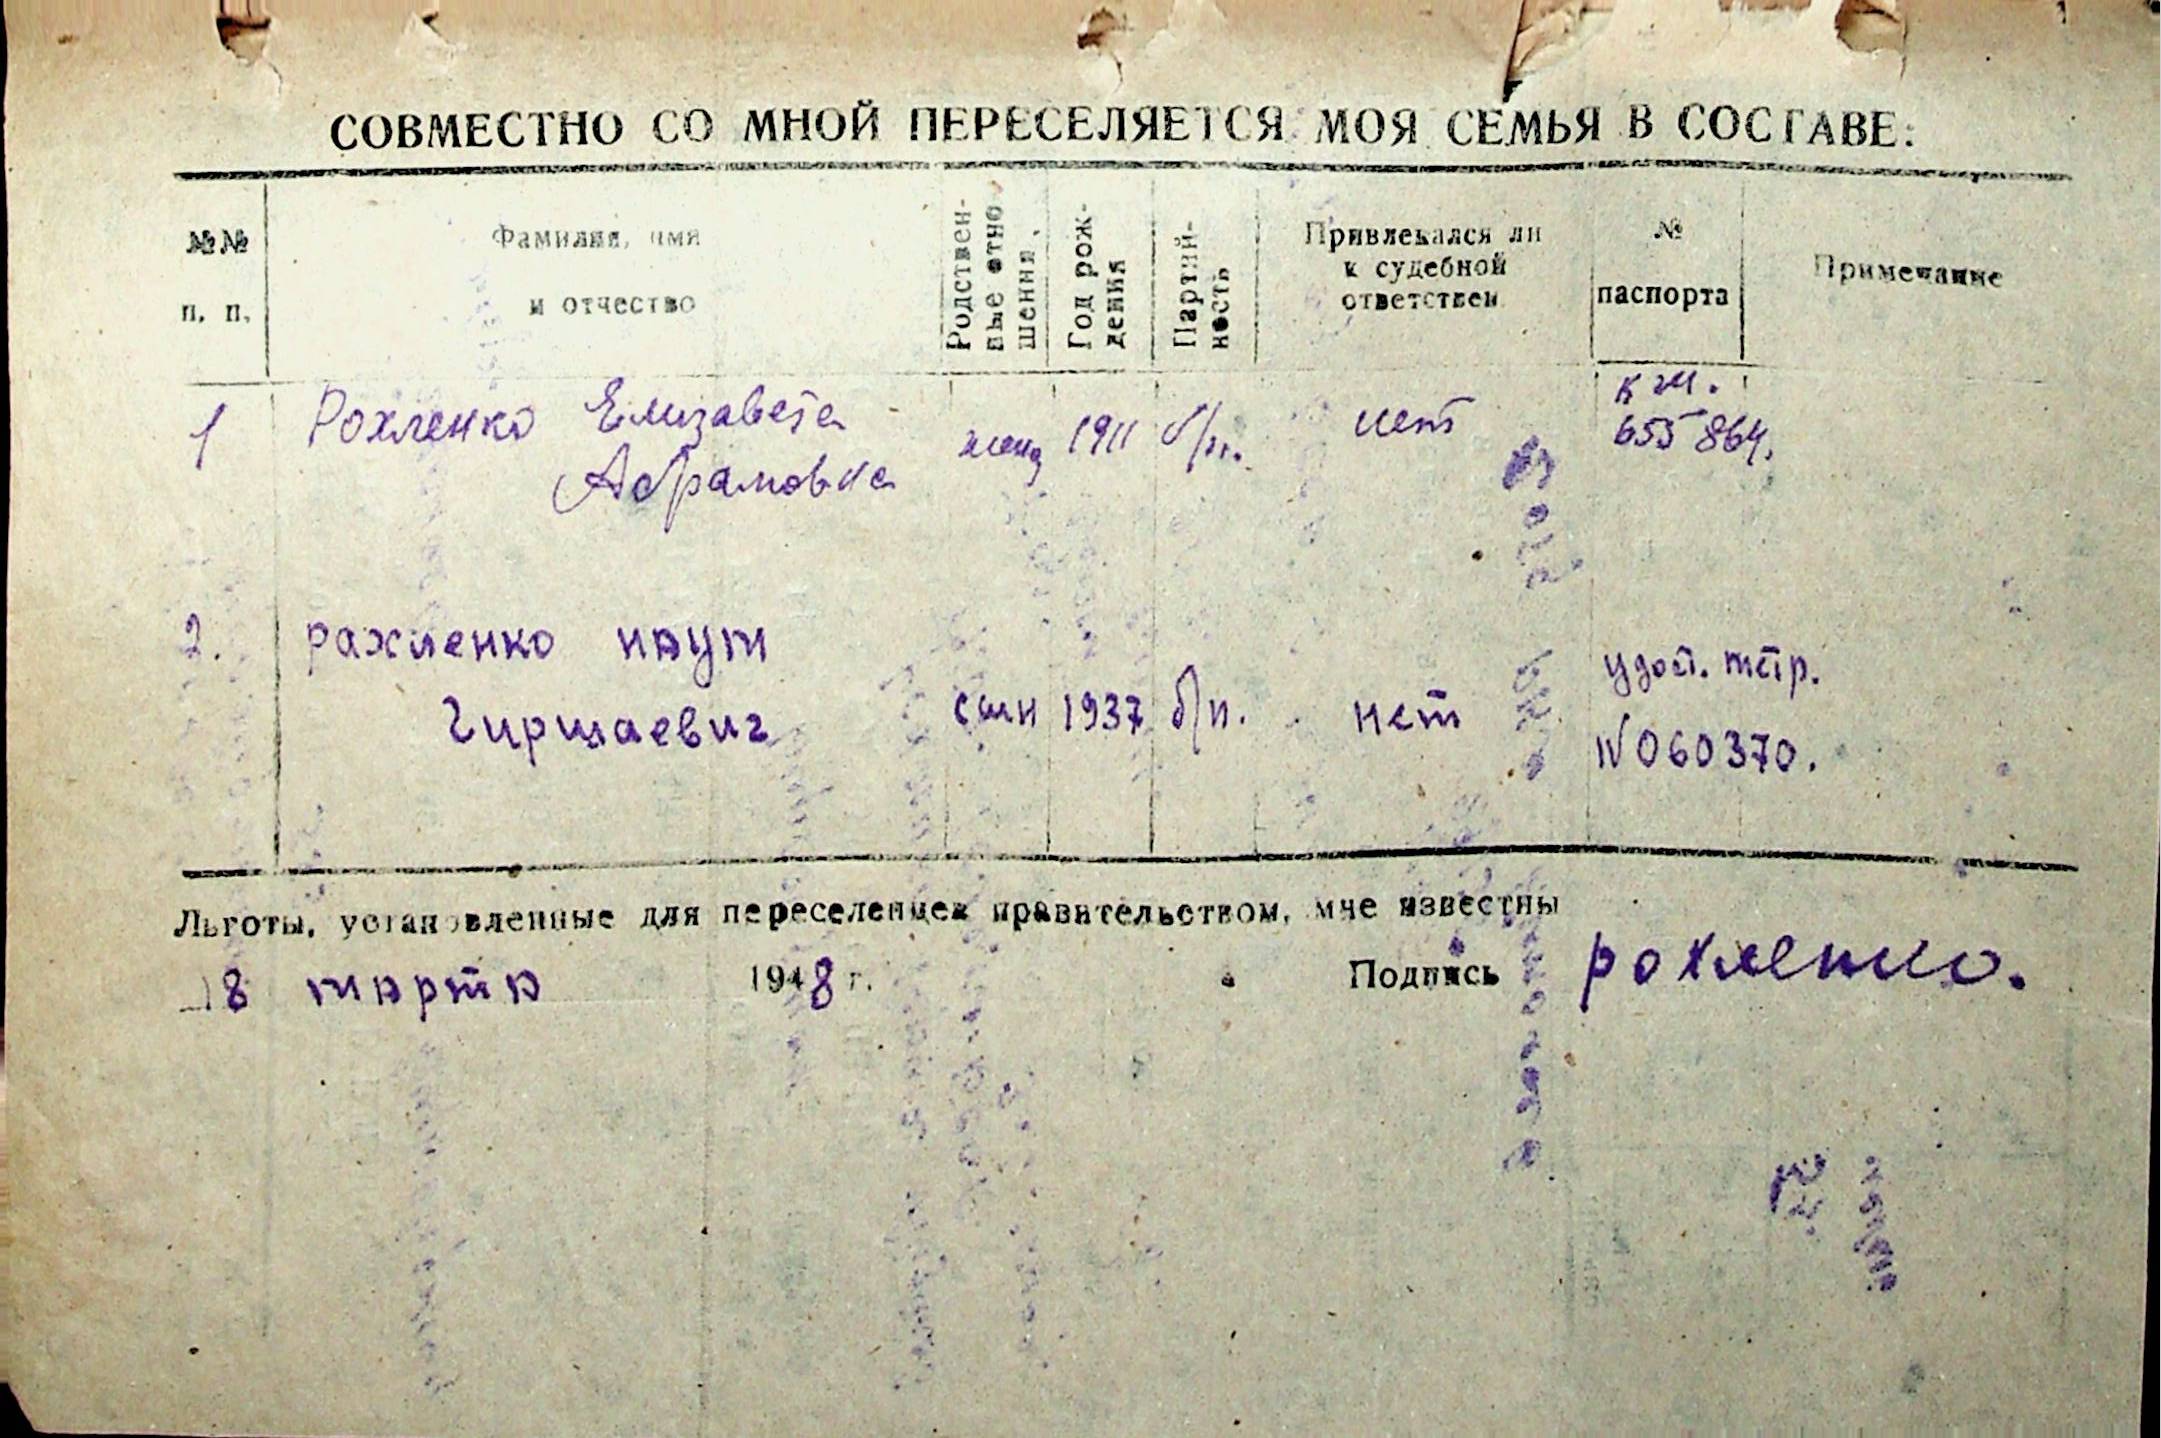 СОВМЕСТНО СО МНОЙ ПЕРЕСЕЛЯЕТСЯ МОЯ СЕМЬЯ В СОСТАВЕ:
№№ п. п.
Фамилия, имя и отчество
Родственные отношения,
Год рождения
Партийность
Привлекался ли к судебной ответствен
№ паспорта
Примечание
1 Рохленко Елизавета жена 1911 б/п. нет 655864.
Абрамовна
2. рахленко наум удост. метр.
Гиршаевич сын 1937 б/п. нет N060370.
Льготы, установленные для переселенцев правительством, мне известны
18 марта 1948 г. Подпись рохленко.